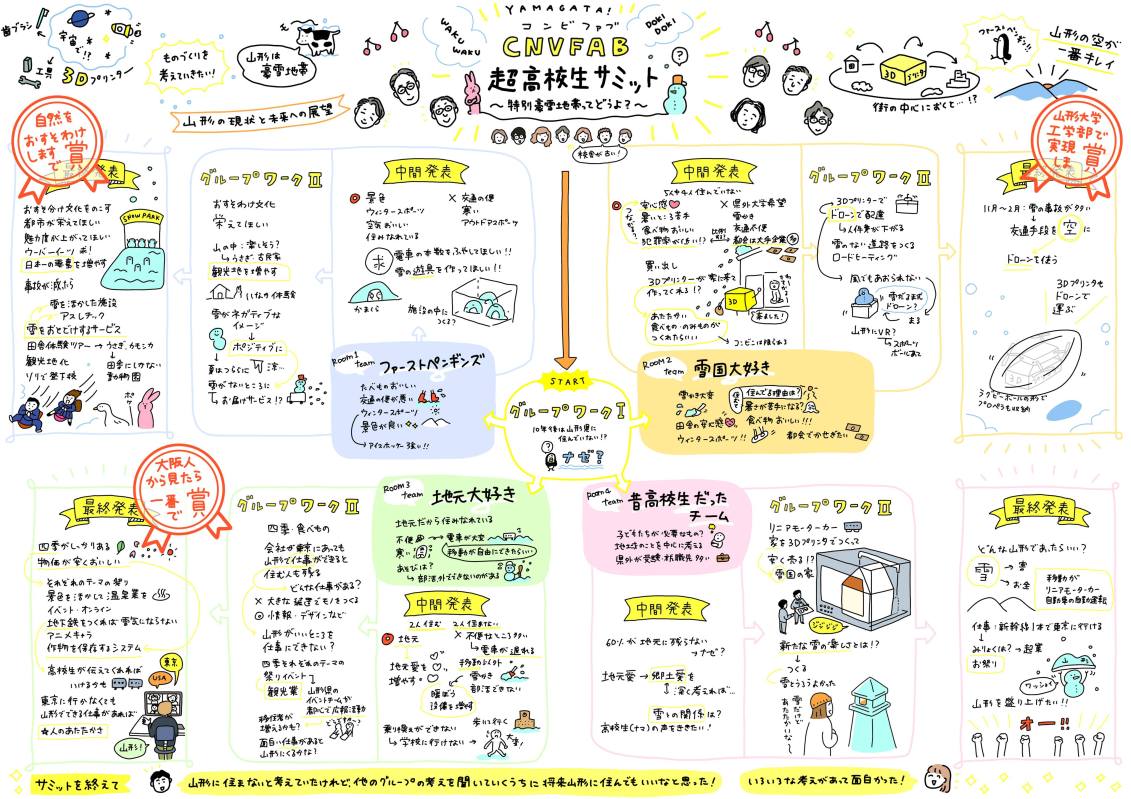 YAMAGATA!
コンビファブ
CNVFAB
超高校生サミット
〜特別豪雪地帯ってどうよ?〜
WAKU
WAKU
DOKI
DOKI
歯ブラシ
宇宙で!!
工具
3Dプリンター
ものづくりを
考えていきたい!
山形は
豪雪地帯
山形の現状と未来への展望
校舎が古い!
3Dプリンタ
街の中心におくと…!?
ファーストペンギン!!
山形の空が
一番キレイ
START
グループワークⅠ
10年後は山形県に
住んでいない!?
ナゼ?
Room1
team
ファーストペンギンズ
たべものおいしい
交通の便が悪い
ウィンタースポーツ
景色が良い
アイスホッケー強い!!
中間発表
景色
ウィンタースポーツ
空気おいしい
住みなれている
× 交通の便
寒い
アウトドアスポーツ
求
電車の本数をふやしてほしい!!
雪の遊具を作ってほしい!!
かまくら
施設の中に
つくる?
グループワークⅡ
おすそわけ文化
栄えてほしい
山の中:楽しそう?
↳うさぎ・古民家
観光地を増やす
いなか体験
雪がネガティブな
イメージ
ポジティブに
夏はつららに
涼…
雪がないところに
お届けサービス!?
自然を
おすそわけ
します
で賞
おすそ分け文化をのこす
都市が栄えてほしい
魅力度が上がってほしい
ウーバーイーツ ボ!
日本の要素を増やす
事故が減ふら
SNOW PARK
雪を活かした施設
アスレチック
雪をおとどけするサービス
田舎体験ツアー→うさぎ,カモシカ
観光地化
田舎にしかない
動物園
ソリで登下校
Room2
team
雪国大好き
雪かき大変
住んでる理由は?
暑さが苦手になる?
田舎の安心感
食べ物おいしい!!
ウィンタースポーツ!!
都会でかせぎたい
中間発表
5人中4人住んでいない
安心感
暑いところ苦手
食べ物おいしい
犯罪率がひくい!?
つながり
× 県外大学希望
雪かき
交通不便
都会は大手企業多
買い出し
3Dプリンターが家に来て
作ってくれる!?
3D
あたたかい
食べもの・のみものが
つくれたらいい
コンビニは限られる
グループワークⅡ
3Dプリンターで
ドローンで配達
↳人件費が下がる
雪のない道路をつくる
ロードヒーティング
風でもあおられない
雪だるま型
ドローン?
まる
山形にVR?
↳スポーツ
ボールまで
山形大学
工学部で
実現
しま賞
11月〜2月:雪の事故が多い
交通手段を空に
ドローンを使う
3Dプリンタも
ドローンで
運ぶ
ラグビーボールの形で
プロペラも収納
Room3
team
地元大好き
地元だから住みなれている
不便→電車が大変
寒い
移動が自由にできたらいい
あそびは?
部活外でできないのがある
中間発表
2人住む
2人住まない
地元
地元愛を
増やす
× 不便なところ多い
↳電車が遅れる
移動シフト
雪かき
部活できない
暖ぼう
設備を増す
乗り換えができない
↳学校に行けない
歩いて行く
大変!
グループワークⅡ
四季・食べもの
会社が東京にあっても
山形で仕事ができると
住む人も残る
どんな仕事がある?
× 大きな機運でモノをつくる
◎ 情報・デザインなど
山形がいいところを
仕事にできない?
四季それぞれのテーマの
祭りイベント
観光業
山形県の
イベントチームが
都心で広報活動
移住者が
増えるかも?
面白い仕事があると
山形にくるかな?
大阪人
から見たら
一番
で賞
最終発表
四季がしっかりある
物価が安くおいしい
それぞれテーマの祭り
景色を活かして温泉業を
イベント・オンライン
地下鉄をつくれば雪気にならない
アニメキャラ
作物を保存するシステム
高校生が伝えてくれれば
いけるかも
東京に行かなくても
山形でできる仕事があれば
☆人のあたたかさ
東京
USA
山形!
Room4
team
昔高校生だった
チーム
子どもたちが必要なもの?
地土活のことを中心に考える
県外が受験・就職先多い
中間発表
60%が地元に残らない
→ナゼ?
地元愛→郷土愛を
↳深く考えれば…
雪との関係は?
高校生(ナマ)の声をききたい!
グループワークⅡ
リニアモーターカー
家を3Dプリンタでつくって
安く売る!?
雪国の家
ジジジジ
新たな雪の楽しさとは!?
つくる
雪とうろうよかった
雪だけで
あたたかくない?
最終発表
どんな山形であったらいい?
雪
→害
→お金
移動が
リニアモーターカー
自動車の自動運転
仕事:新幹線1本で東京に行ける
みりょくは?→起業
お祭り
ワッショイ
山形を盛り上げたい!!
オー!!
サミットを終えて
山形に住まないと考えていたけれど,他のグループの考えを聞いていくうちに将来山形に住んでもいいなと思った!
いろいろな考えがあって面白かった!